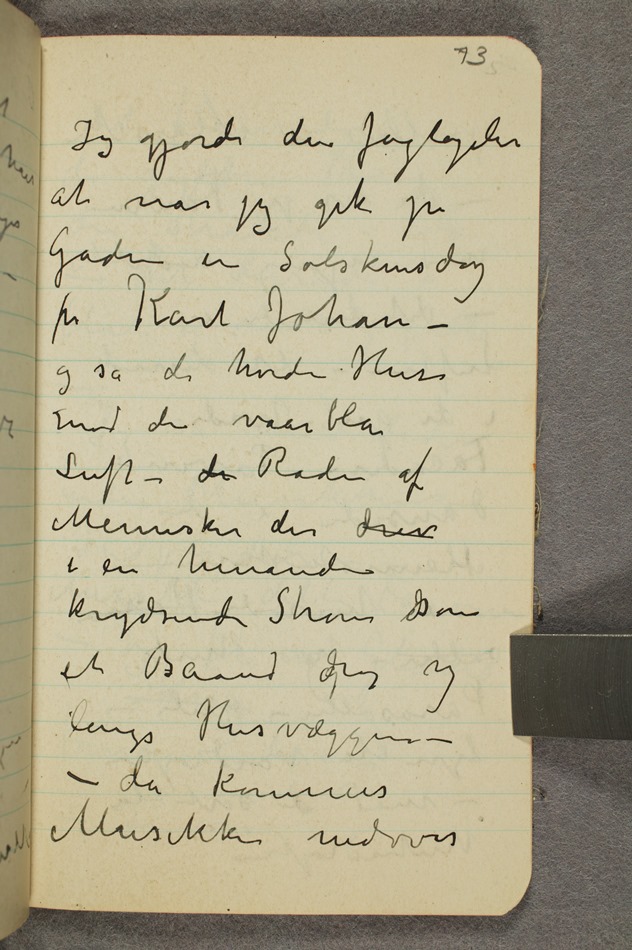 13
Jeg gjorde den Jagtagelse
at når jeg gik på
Gaden en Solskinsdag
på Karl Johan –
og så de hvide Huse
mod den vaarblå
Luft – de Rader af
Mennesker der drev
i en hinanden
krydsende Strøm som
et Baand drog sig
langs Husvæggene –
– da kommer
Musikken nedover